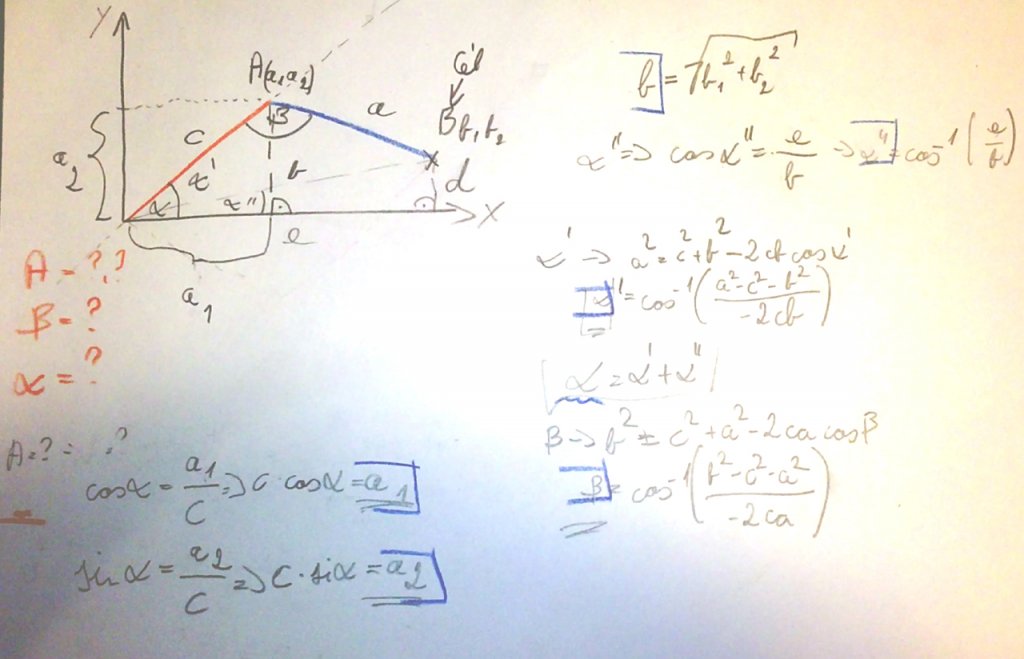 Y
A(a₁a₂)
Cél
B b₁, b₂
β
a
c
a₂
α'
b
d
α
α''
X
e
a₁
A = ?,?
β = ?
α = ?
A = ? = ?
cosα = a₁/c => c · cosα = a₁
sinα = a₂/c => c · siα = a₂
b = √b₁² + b₂²
α'' => cosα'' = e/b -> α'' = cos⁻¹(e/b)
α' -> a² = c² + b² - 2cb cosα'
α'' = cos⁻¹((a² - c² - b²)/(-2cb))
α = α' + α''
β -> b² = c² + a² - 2ca cosβ
β = cos⁻¹((b² - c² - a²)/(-2ca))